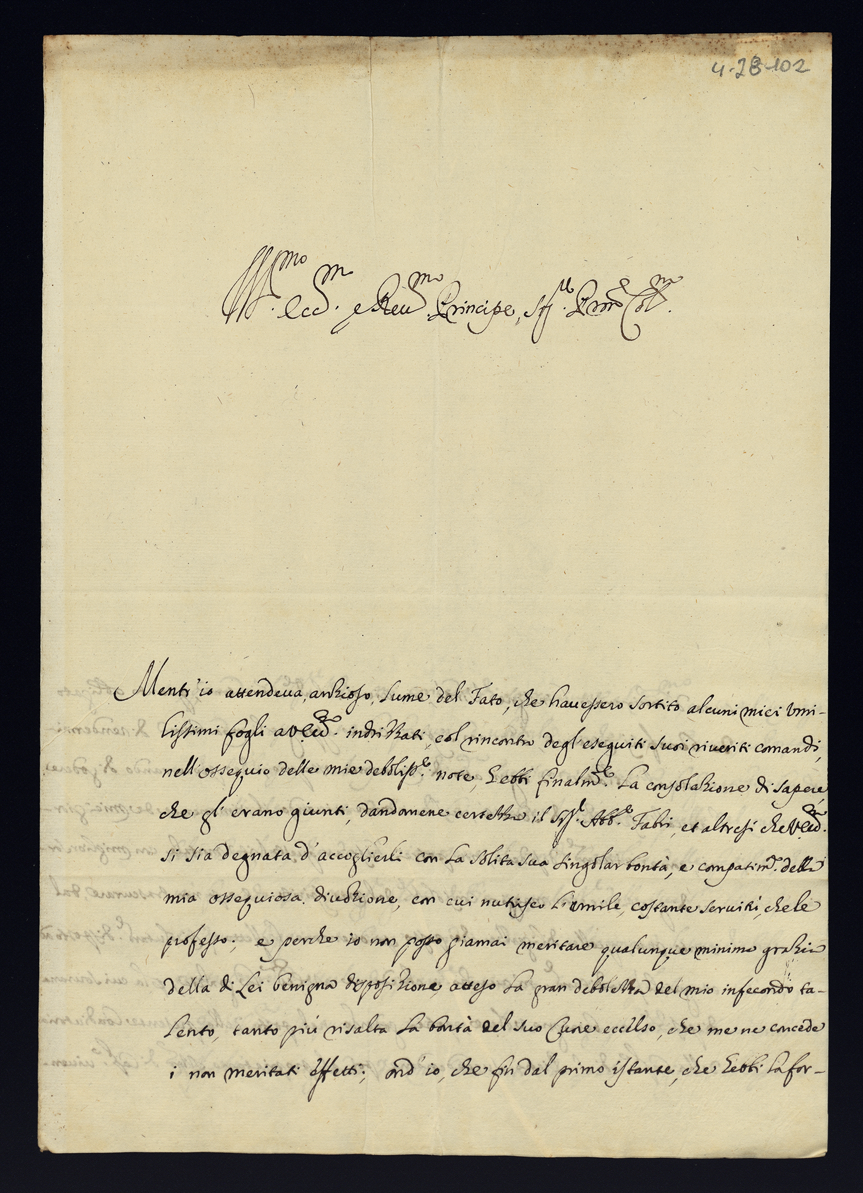 4-28-102
Ill.mo Ecc.mo e Reu.mo Principe, Sig.r Pron.e Col.mo
Mentr'io attendeua, ankioso, lume del Fato, che hauessero sortito alcuni miei vmi-
lissimi fogli a V.Ecc.a indrikati, col rincontro degl'eseguiti suoi riueriti comandi,
nell'ossequio delle mie deboliss.e note, hebbi finalm.te la consolakione di sapere,
che gl'erano giunti, dandomene certekka il Sig.r Abb.e Fabri, et altresi che V.Ecc.a
si sia degnata, d'accoglierli con la solita sua singolar bontà, e compatim.to della
mia ossequiosa diuokione, con cui nutrisco l'umile, costante seruitù, che le
professo; e perche io non posso giamai meritare qualunque minima grakia
della di Lei benigna disposikione atteso la gran debolekka del mio infecondo ta-
lento, tanto più risalta la bontà del suo Cuore eccelso, che me ne concede
i non meritati effetti; ond'io, che fin dal primo istante, che hebbi la for-